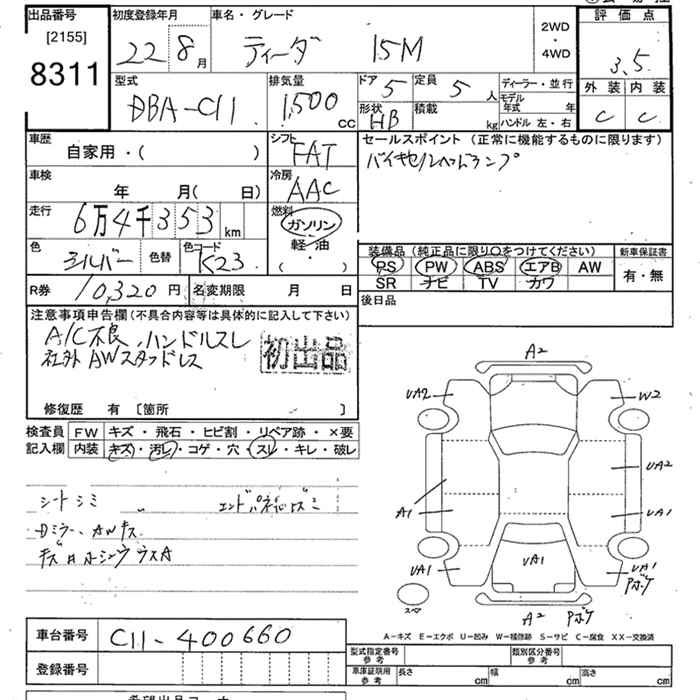 出品番号
[2155]
8311
初度登録年月
22年8月
車名・グレード
ティーダ 15M
2WD
・
4WD
評価点
3.5
外装 内装
C C
型式
DBA-C11
排気量
1,500 CC
ドア
5
定員
5 人
形状
HB
積載
kg
ディーラー・並行
モデル年式 年
ハンドル 左・右
車歴
自家用・( )
シフト
FAT
冷房
AAC
車検
年 月( 日)
走行
6万4千353km
燃料
ガソリン
軽・油
( ・ )
色
シルバー
色替
色コード
K23
R券 10,320円
名変期限 月 日
セールスポイント (正常に機能するものに限ります)
バイキセノンヘッドランプ
装備品 (純正品に限り○をつけてください)
PS PW ABS エアB AW
SR ナビ TV カワ
新車保証書
有・無
後日品
注意事項申告欄(不具合内容等は具体的に記入して下さい)
A/C不良、ハンドルスレ
社外AWスタッドレス
初出品
修復歴 有 [箇所 ]
検査員記入欄
FW キズ・飛石・ヒビ割・リペア跡・×要
内装 キズ・汚レ・コゲ・穴・スレ・キレ・破レ
シートシミ
Dミラー、AWキズ
A2
UA2
W2
UA2
A1
UA1
UA1
UA1
UA1
Pボケ
スペア
A2 Pボケ
A-キズ E-エクボ U-凹み W-補修跡 S-サビ C-腐食 XX-交換済
車台番号 C11-400660
登録番号
型式指定番号 参考
類別区分番号 参考
車庫証明用 参考
長さ cm 幅 cm 高さ cm